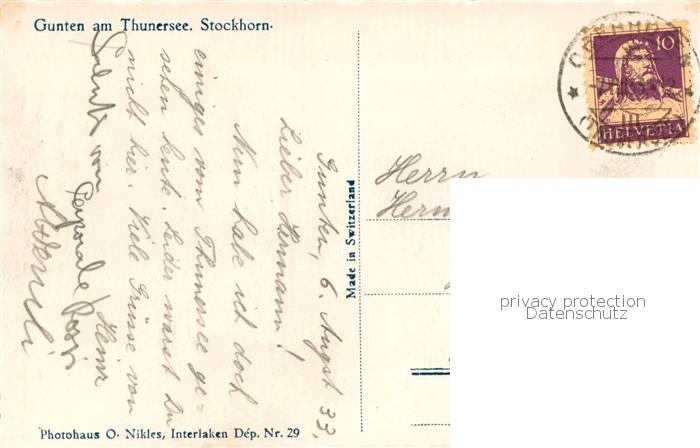 Gunten am Thunersee. Stockhorn.
Gunten, 6. Augst 33.
Lieber Hermann!
Nun habe ich doch
einiges vom Thunersee ge=
sehen heute. Leider warst Du
nicht hier. Viele Grüsse von
Heinz
Made in Switzerland
Herrn
Herm
10
HELVETIA
privacy protection
Datenschutz
Photohaus O. Nikles, Interlaken Dép. Nr. 29